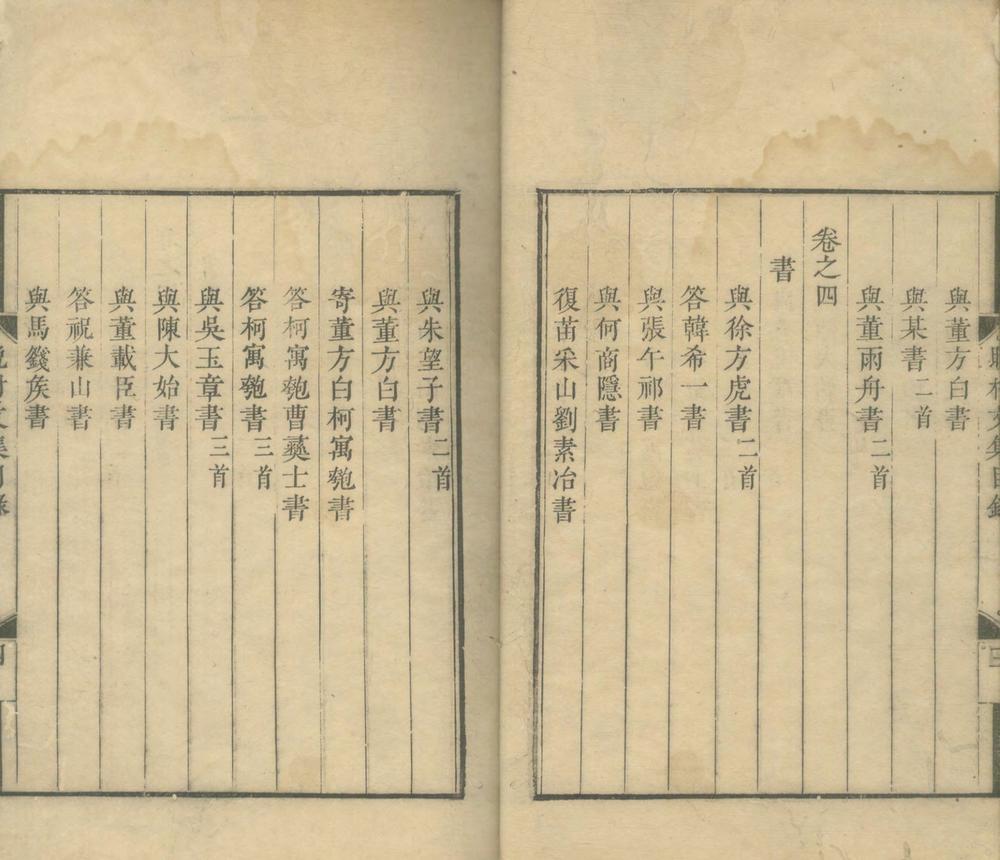 與董方白書
與某書二首
與董雨舟書二首
卷之四
書
與徐方虎書二首
答韓希一書
與張午祁書
與何商隱書
復苗采山劉素冶書
與朱望子書二首
與董方白書
寄董方白柯寓匏書
答柯寓匏曹彝士書
答柯寓匏書三首
與吳玉章書三首
與陳大始書
與董載臣書
答祝兼山書
與馬矦書